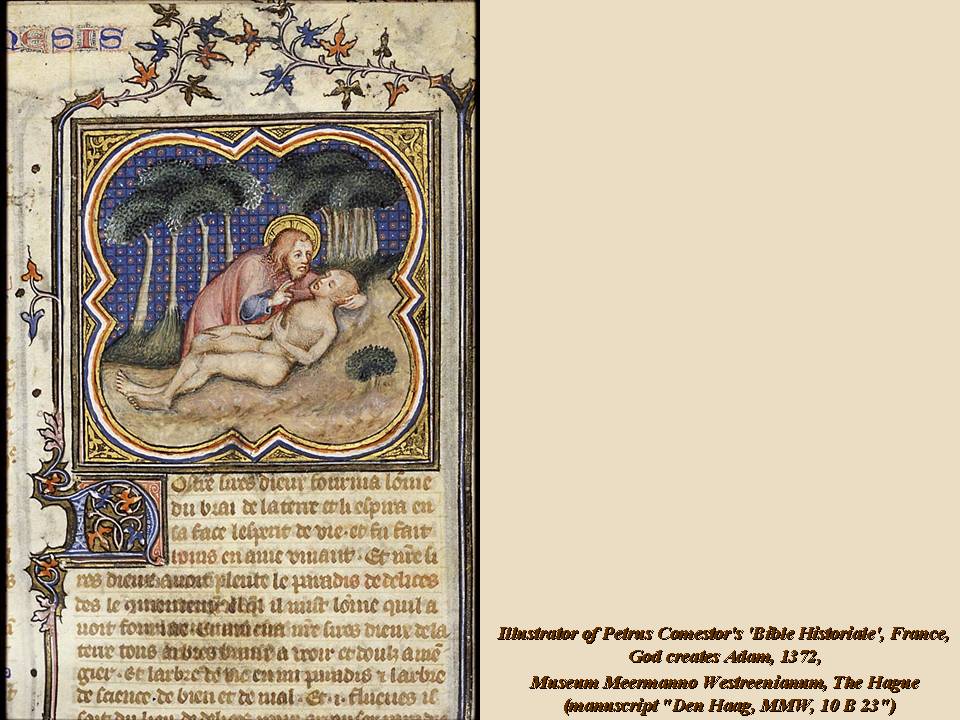 ESIS
Ostre sires dieux fourma lome
du vrai de la terre et li espira en
sa face lesperit de vie. et fu fait
homs en ame vivant. Et nre si
res dieux avoit plente le paradis de delices
des le il mist lome quil a
voit nre sires dieux de la
terre tous a veoir et doulz a me
gier. Et larbre de vie en mi paradis et larbre
de science de bien et de mal. Et i. flueues
Illustrator of Petrus Comestor's 'Bible Historiale', France,
God creates Adam, 1372,
Museum Meermanno Westreenianum, The Hague
(manuscript "Den Haag, MMW, 10 B 23")